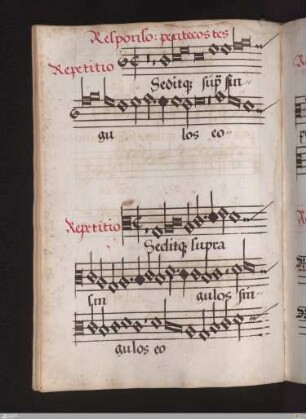 Responso: pentecostes
Repetitio
Seditq; sup̄ sin-
gu los eo-
Repetitio
Seditq; supra
sin gulos sin-
gulos eo